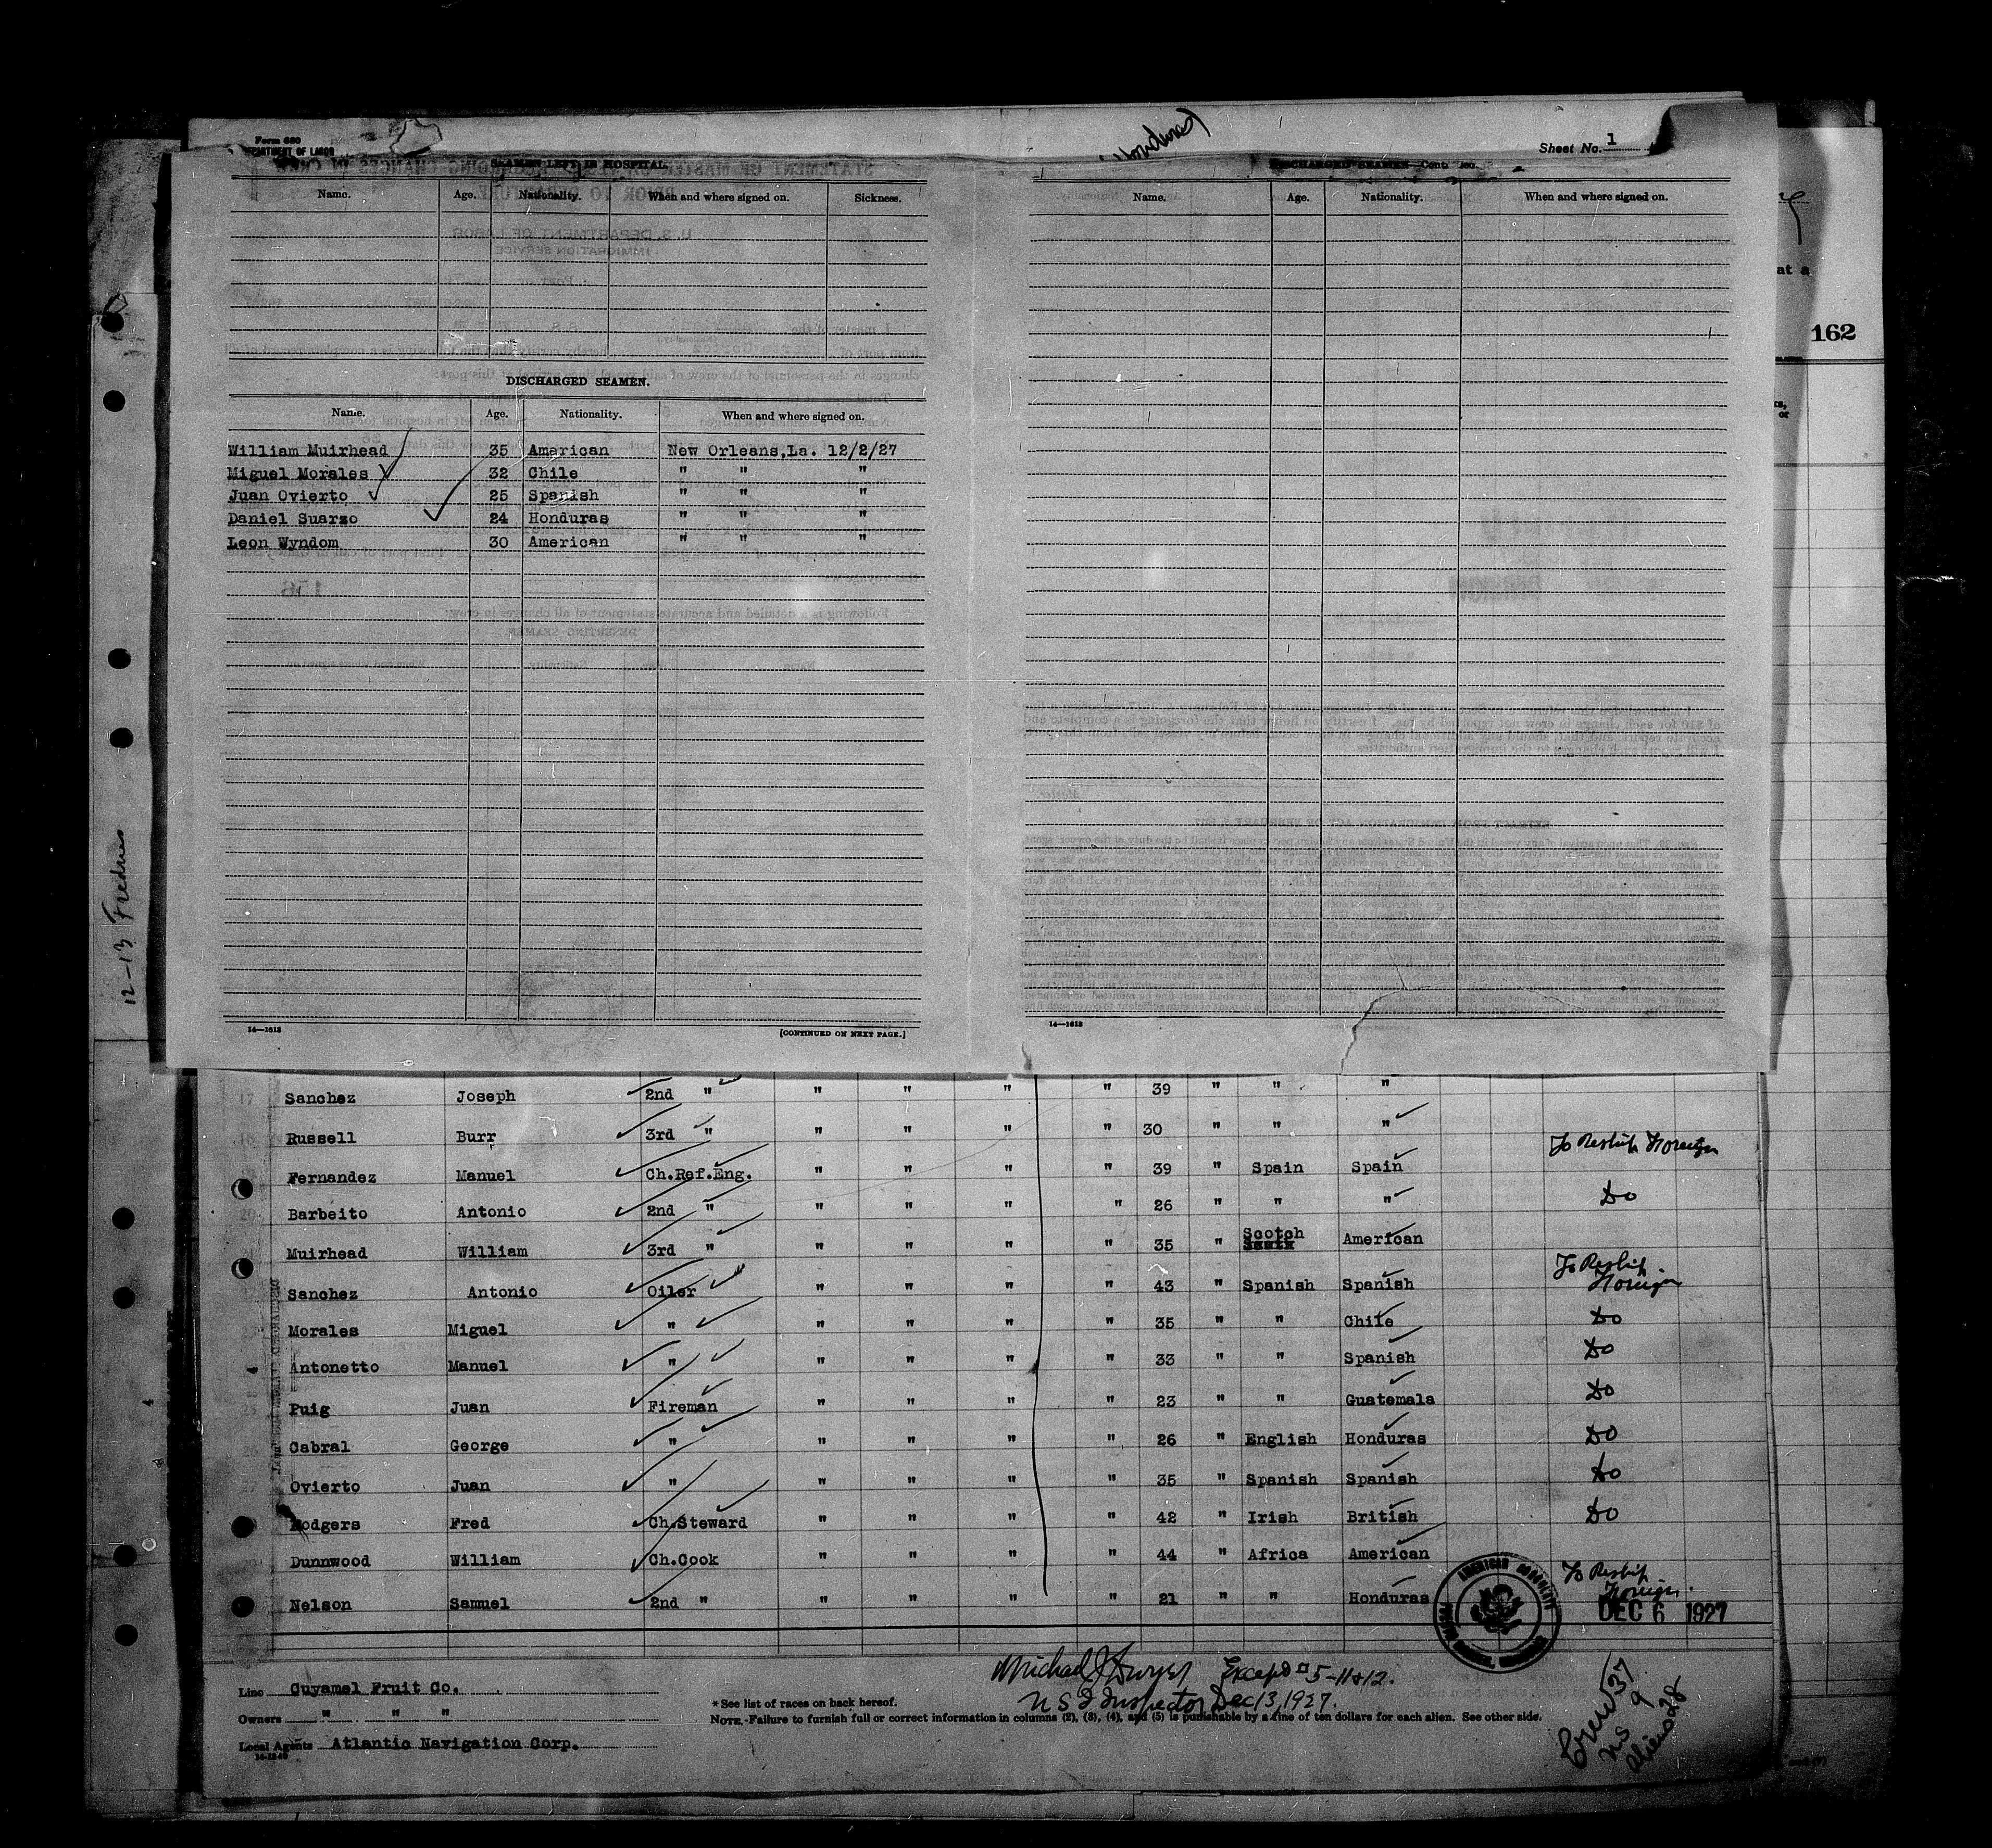 Form 680
DEPARTMENT OF LABOR
Honduras
Sheet No. 1
SEAMEN LEFT IN HOSPITAL.
Name. Age. Nationality. When and where signed on. Sickness.
DISCHARGED SEAMEN.
Name. Age. Nationality. When and where signed on.
William Muirhead 35 American New Orleans,La. 12/2/27
Miguel Morales 32 Chile " " "
Juan Ovierto 25 Spanish " " "
Daniel Suarzo 24 Honduras " " "
Leon Wyndom 30 American " " "
14—1613
[CONTINUED ON NEXT PAGE.]
DISCHARGED SEAMEN
Name. Age. Nationality. When and where signed on.
14—1613
at a
162
or
12-13
17 Sanchez Joseph 2nd " " " " " 39 " " "
18 Russell Burr 3rd " " " " " 30 " " "
19 Fernandez Manuel Ch.Ref.Eng. " " " " 39 " Spain Spain To Reship Foreign
20 Barbeito Antonio 2nd " " " " " 26 " " " Do
Muirhead William 3rd " " " " " 35 " Scotch American
Sanchez Antonio Oiler " " " " 43 " Spanish Spanish To Reship Foreign
23 Morales Miguel " " " " " 35 " " Chile Do
Antonetto Manuel " " " " " 33 " " Spanish Do
25 Puig Juan Fireman " " " " 23 " " Guatemala Do
26 Cabral George " " " " " 26 " English Honduras Do
27 Ovierto Juan " " " " " 35 " Spanish Spanish Do
Rodgers Fred Ch.Steward " " " " 42 " Irish British Do
29 Dunnwood William Ch.Cook " " " " 44 " Africa American
Nelson Samuel 2nd " " " " " 21 " " Honduras To Reship Foreign
DEC 6 1927
AMERICAN CONSULATE
Line Cuyamel Fruit Co.
Owners " " "
Local Agents Atlantic Navigation Corp.
14-1240
Michael J Dwyer Except # 5-11+12.
U S I Inspector Dec 13, 1927.
* See list of races on back hereof.
NOTE.-Failure to furnish full or correct information in columns (2), (3), (4), and (5) is punishable by a fine of ten dollars for each alien. See other side.
Crew 37
US 9
Aliens 28